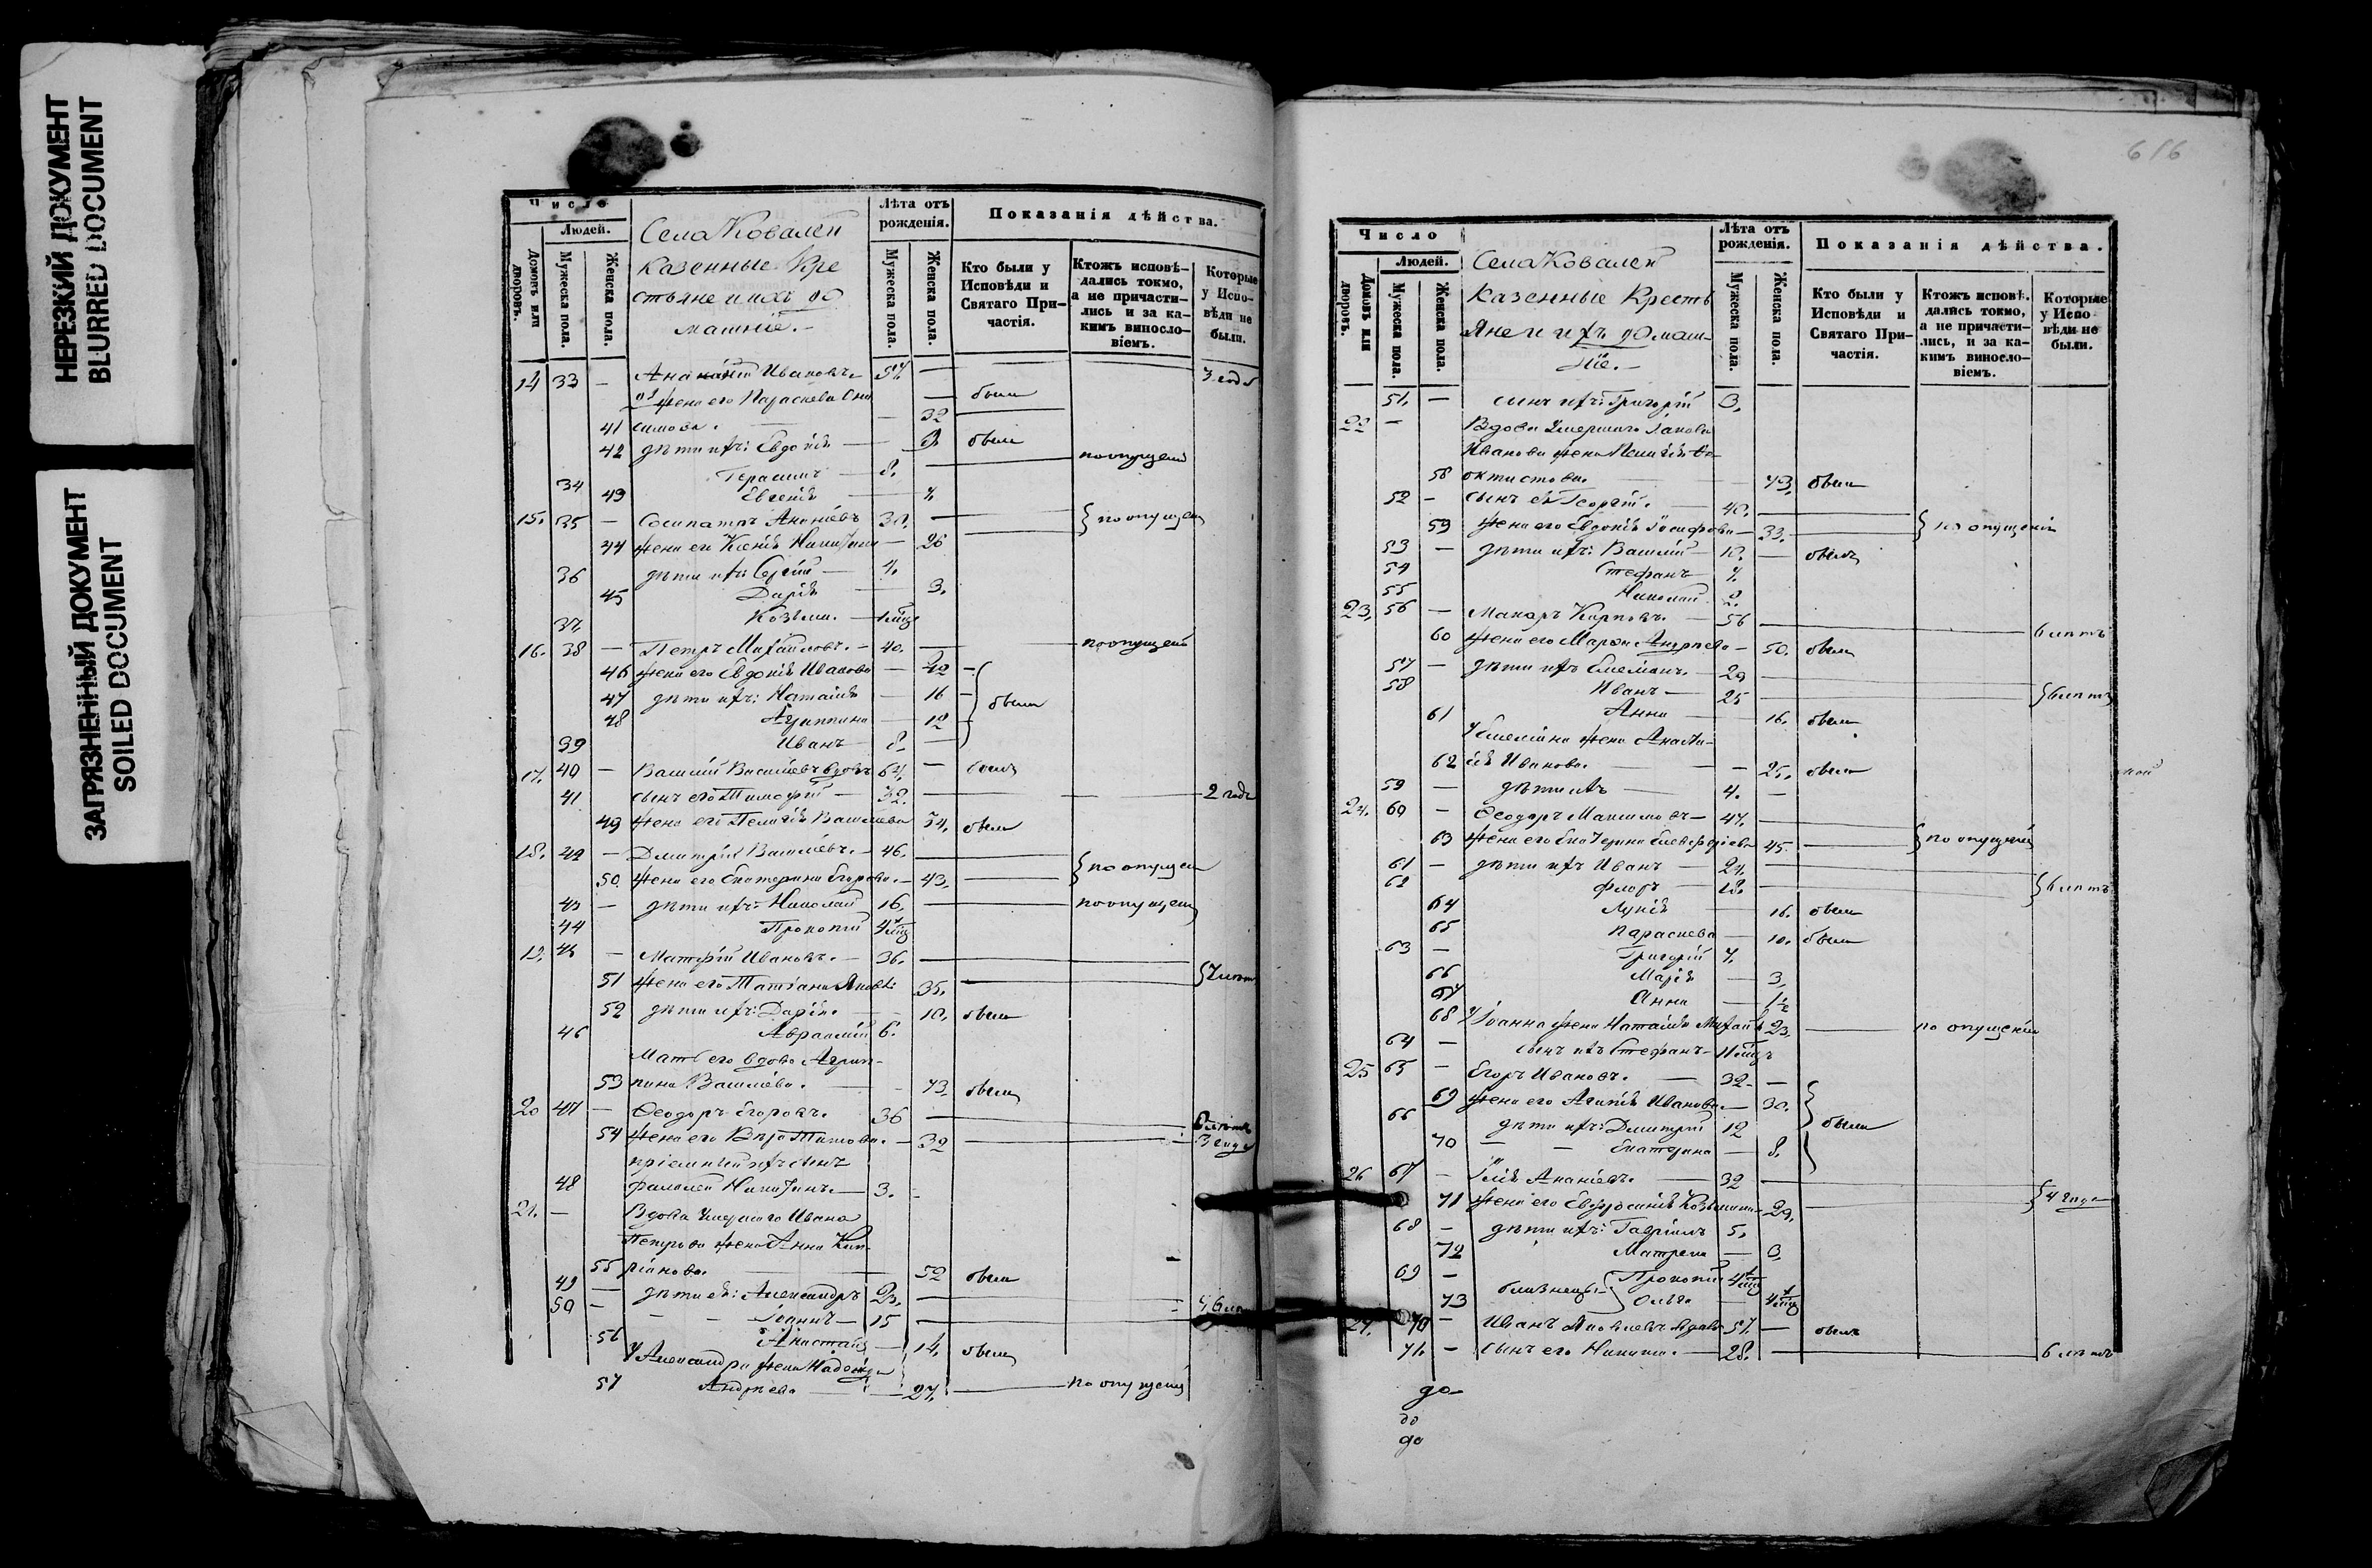 НЕРЕЗКИЙ ДОКУМЕНТ
BLURRED DOCUMENT
ЗАГРЯЗНЕННЫЙ ДОКУМЕНТ
SOILED DOCUMENT
Число
Людей.
Домовъ или дворовъ.
Мужеска пола.
Женска пола.
Села Ковалей
казенные Кре
стьяне и ихъ до
машніе.-
Лѣта отъ рожденія.
Мужеска пола.
Женска пола.
Показанія дѣйства.
Кто были у Исповѣди и Святаго Причастія.
Ктожъ исповѣдались токмо, а не причастились и за какимъ винословіемъ.
Которые у Исповѣди не были.
14 33 — Ананій Ивановъ 57. — 3 года
жена его Параскева Они — были
41 симова. — 32
42 дѣти ихъ: Евдокія — 9. были
34 Герасимъ — 8. — по опущен
43 Евгенія — 7.
15. 35 — Сосипатръ Ананіевъ 30. — } по опущен
44 жена его Ксенія Никитина — 26
36 дѣти ихъ: Сергій — 7.
45 Дарія — 3.
37. Козьма. —
16. 38 — Петръ Михайловъ. — 40. — по опущен
46 жена его Евдокія Иванова — 42
47 дѣти ихъ: Наталія — 16 были
48 Агриппина — 12
39 Иванъ — 8.
17. 40 — Василій Васильевъ вдовъ 64. — былъ
41 сынъ его Тимофей — 32. — 2 года
49 жена его Пелагія Васильева 34. были
18. 42 — Дмитрій Васильевъ. — 46. — } по опущен
50. жена его Екатерина Егорова. — 43.
43 — дѣти ихъ: Николай 16. — по опущен
44 Прокопій
19. 45 — Матфій Ивановъ. — 36. —
51 жена его Татіана Яковл: 35.
52 дѣти ихъ: Дарія. — 10. были
46 Авраамій 6.
Мать его вдова Агрип-
53 пина Васильева. — 73. были
20 47 — Ѳеодоръ Егоровъ. 36 — 6 лѣтъ
54 жена его Вѣра Титова. — 32 — 3 года
пріемный ихъ сынъ
48 Фалалей Никитинъ. — 3.
21. — Вдова умершаго Ивана
Петрова жена Анна Кип-
55 ріанова. — 52 были
49 — дѣти ея: Александръ 23.
50 — Іоаннъ — 15
56 Анастасія — 14. были
У Александра жена Надежда
57 Андреева — 27. — по опущен
616
Число
Людей.
Домовъ или дворовъ.
Мужеска пола.
Женска пола.
Села Ковалей
казенные Кресть
яне и ихъ домаш-
ніе.-
Лѣта отъ рожденія.
Мужеска пола.
Женска пола.
Показанія дѣйства.
Кто были у Исповѣди и Святаго Причастія.
Ктожъ исповѣдались токмо, а не причастились, и за какимъ винословіемъ.
Которые у Исповѣди не были.
51. — сынъ ихъ: Григорій 3.
22 — Вдова умершаго Іакова
Иванова жена Пелагія Ѳе-
58 октистова. — 73. были
52 — сынъ ея Георгій. 40. —
59 жена его Евдокія Іосифова — 33. — } по опущенію
53 — дѣти ихъ: Василій — 10. — былъ
54 Стефанъ — 7.
55 Николай 2.
23. 56 — Макаръ Карповъ. — 56 — 6 лѣтъ
60 жена его Марѳа Андреева — 50. были
57 — дѣти ихъ Емеліанъ. — 29 —
58 Иванъ — 25 — } 6 лѣтъ
61 Анна — 16. были
У Емеліана жена Анаста-
62 сія Иванова. — 25. были
59 — дѣти ихъ — 4. —
24. 60 — Ѳеодоръ Максимовъ — 47. —
63 жена его Екатерина Елевферіева 45. — } по опущенію
61 — дѣти ихъ Иванъ — 24. —
62 Флоръ — 18. — } 6 лѣтъ
64 Лукія — 16. были
65 Параскева — 10. были
63 — Григорій 7.
66 Марія — 3.
67 Анна — 1½
68 У Іоанна жена Наталія Михайл 23. — по опущенію
64 — сынъ ихъ Стефанъ —
25 65 — Егоръ Ивановъ. — 32. —
69 жена его Агапія Иванова. — 30.
66 дѣти ихъ: Дмитрій 12 были
70 — Екатерина — 8.
26 67 — Илія Ананіевъ. — 32 —
71 жена его Евфросинія Козьмина — 29. — } 4 года
68 — дѣти ихъ: Гавріилъ 5.
72 Матрена — 3.
69 — близнецы { Прокопій
73 Ольга —
27. 70 — Иванъ Яковлевъ вдовъ 57. — былъ
71. — сынъ его Никита. — 28. — 6 лѣтъ
до
до
до